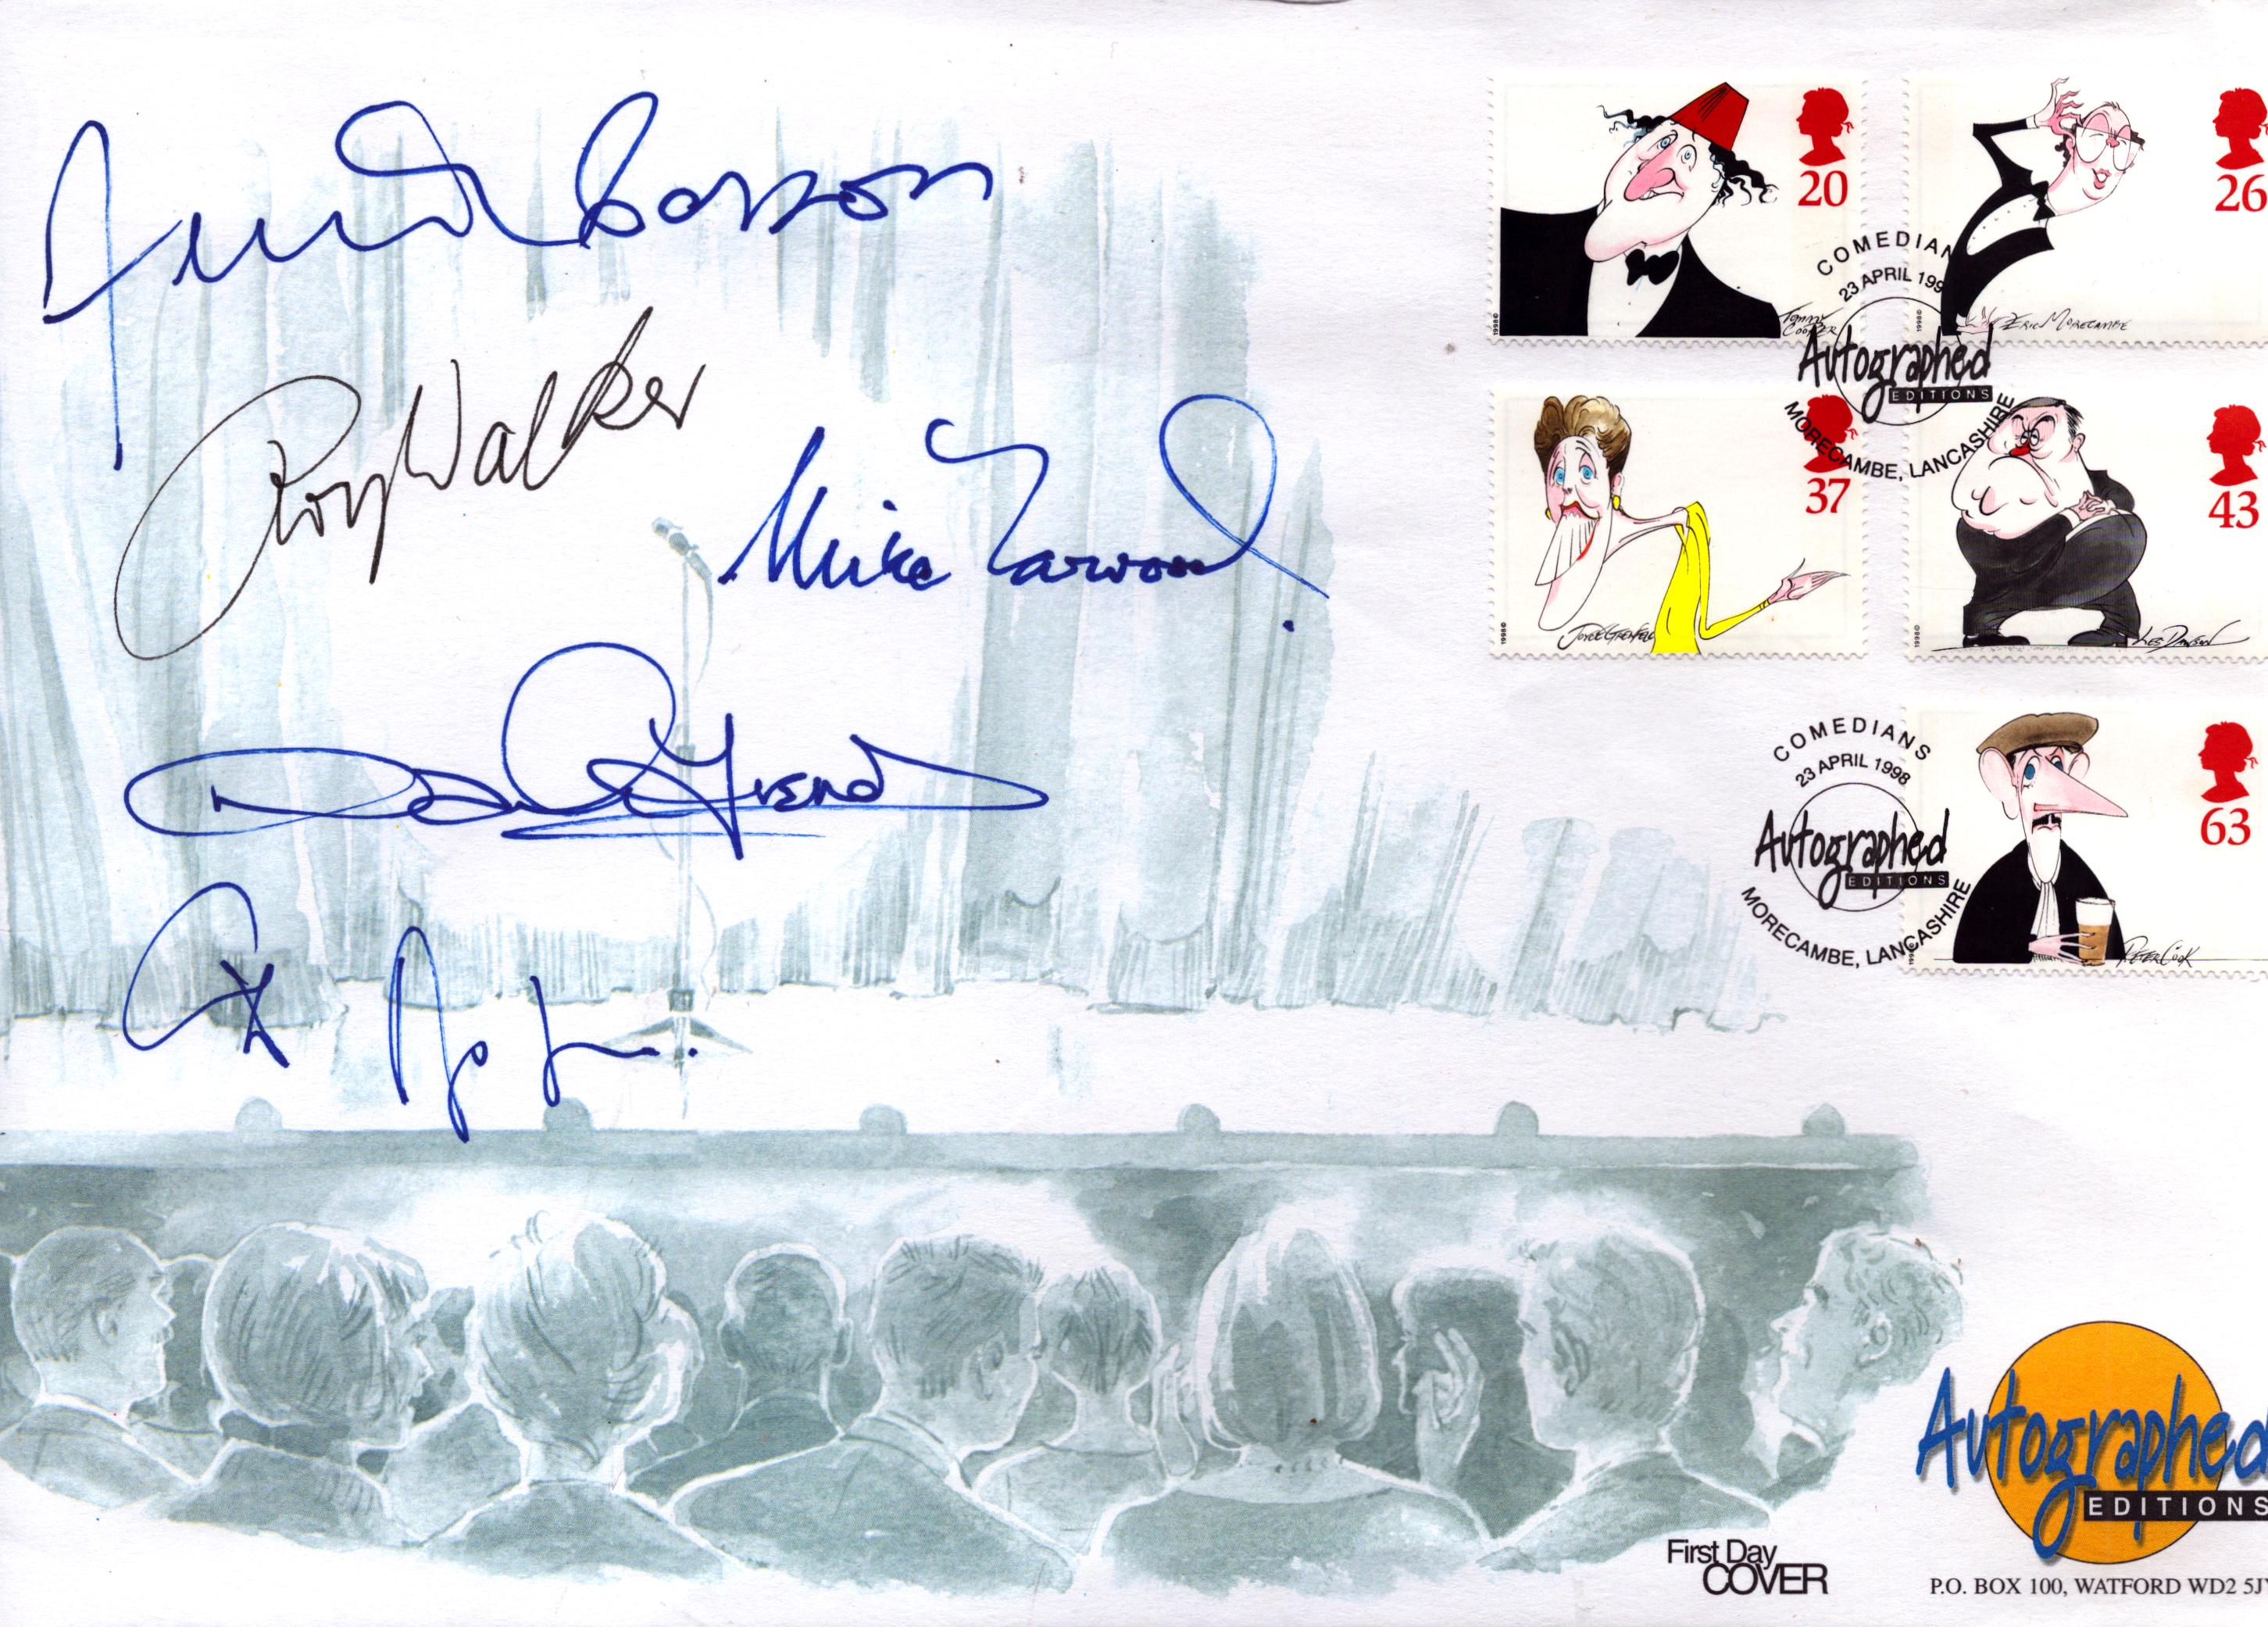 20
26
1998©
TOMMY COOPER
1998©
ERIC MORECAMBE
COMEDIAN
23 APRIL 199
Autographed
EDITIONS
MORECAMBE, LANCASHIRE
Roy Walker
Mike Yarwood
37
43
1998©
JOYCE GRENFELL
1998©
LES DAWSON
COMEDIANS
23 APRIL 1998
Autographed
EDITIONS
MORECAMBE, LANCASHIRE
63
PETER COOK
Autographed
EDITIONS
First Day
COVER
P.O. BOX 100, WATFORD WD2 5J